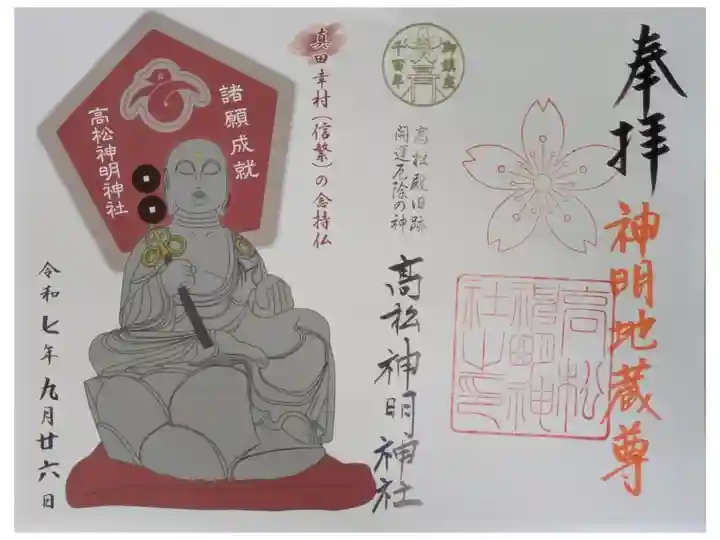 奉拝
神明地蔵尊
高松
神明神
社之印
御鎮座
千百年
高松殿旧跡
開運厄除の神
高松神明神社
真田幸村(信繁)の念持仏
諸願成就
高松神明神社
令和七年九月廿六日